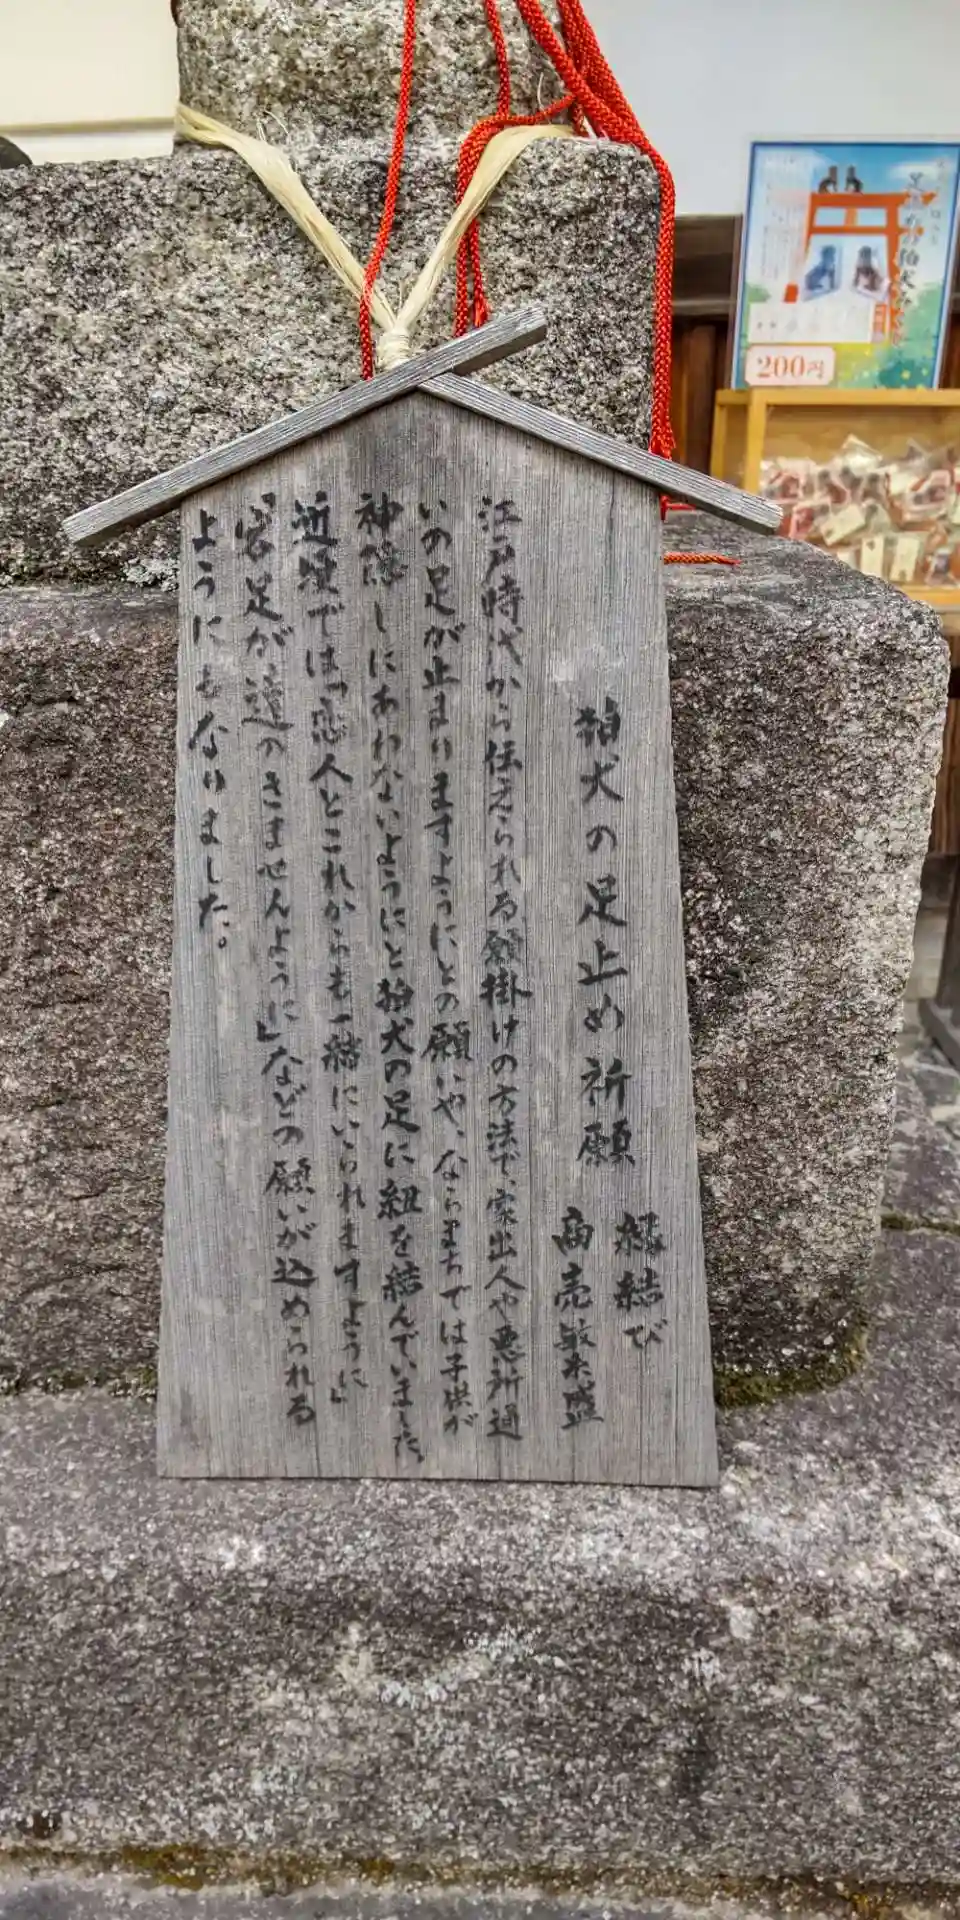 狛犬の足止め祈願
縁結び
商売繁盛
江戸時代から伝えられる願掛けの方法で、家出人や悪所通
いの足が止まりますようにとの願いや、ならまちでは子供が
神隠しにあわないようにと狛犬の足に紐を結んでいました。
近頃では「恋人とこれからも一緒にいられますように」
「客足が遠のきませんように」などの願いが込められる
ようにもなりました。
200円